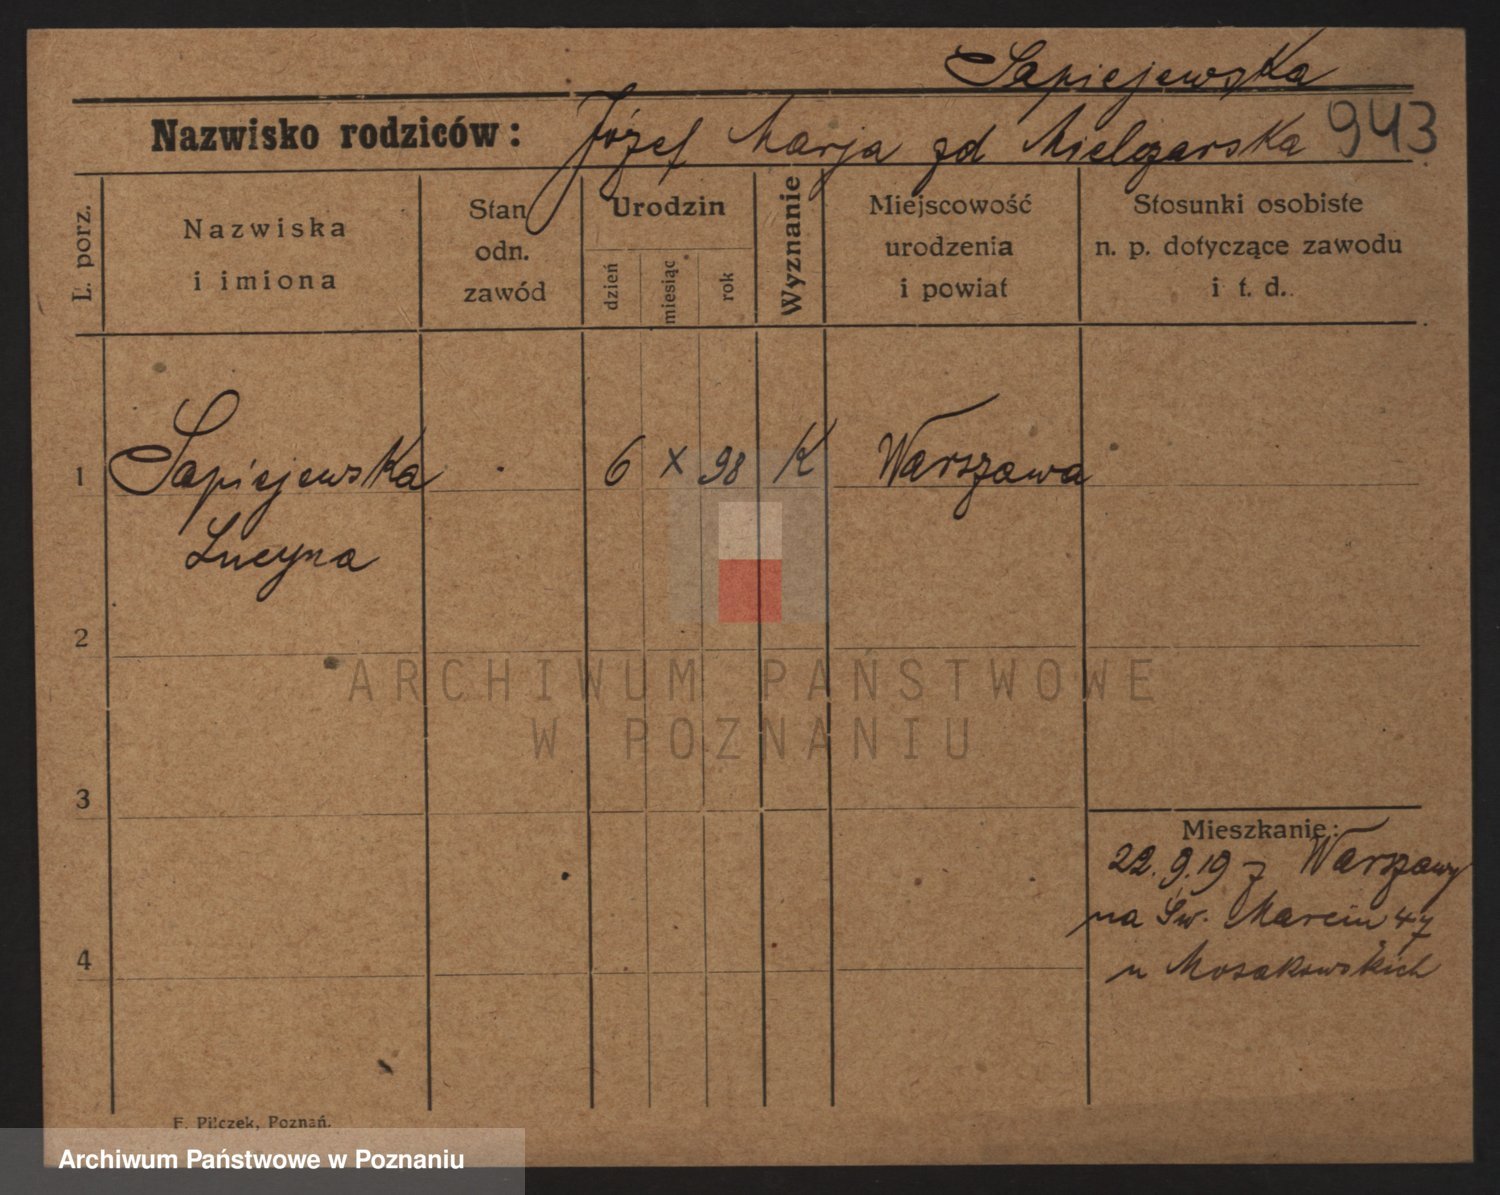 Sapiejewska
Nazwisko rodziców: Józef Marja zd Mielczarska 943
L. porz.
Nazwiska
i imiona
Stan
odn.
zawód
Urodzin
dzień
miesiąc
rok
Wyznanie
Miejscowość
urodzenia
i powiat
Stosunki osobiste
n. p. dotyczące zawodu
i t. d.
1 Sapiejewska 6 X 98 K Warszawa
Lucyna
2
ARCHIWUM PAŃSTWOWE
W POZNANIU
3
Mieszkanie:
22.9.19 z Warszawy
na Św. Marcin 47
4
u Mosakowskich
F. Pilczek, Poznań.
Archiwum Państwowe w Poznaniu